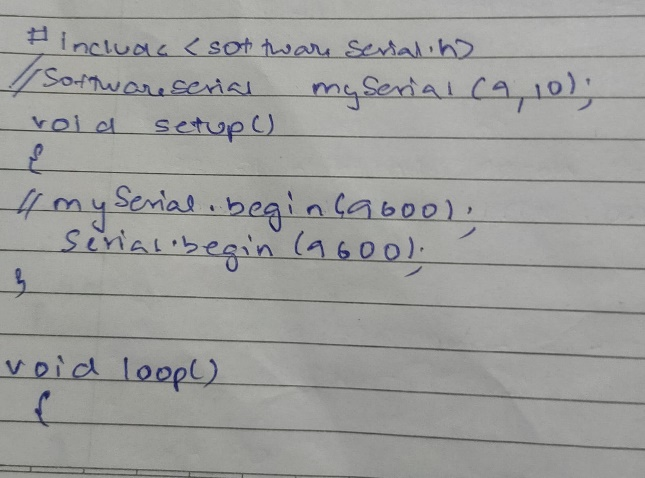 # include <software serial.h>
//Software serial mySerial (9,10);
void setup()
{
// my Serial.begin(9600);
Serial.begin (9600);
}
void loop()
{